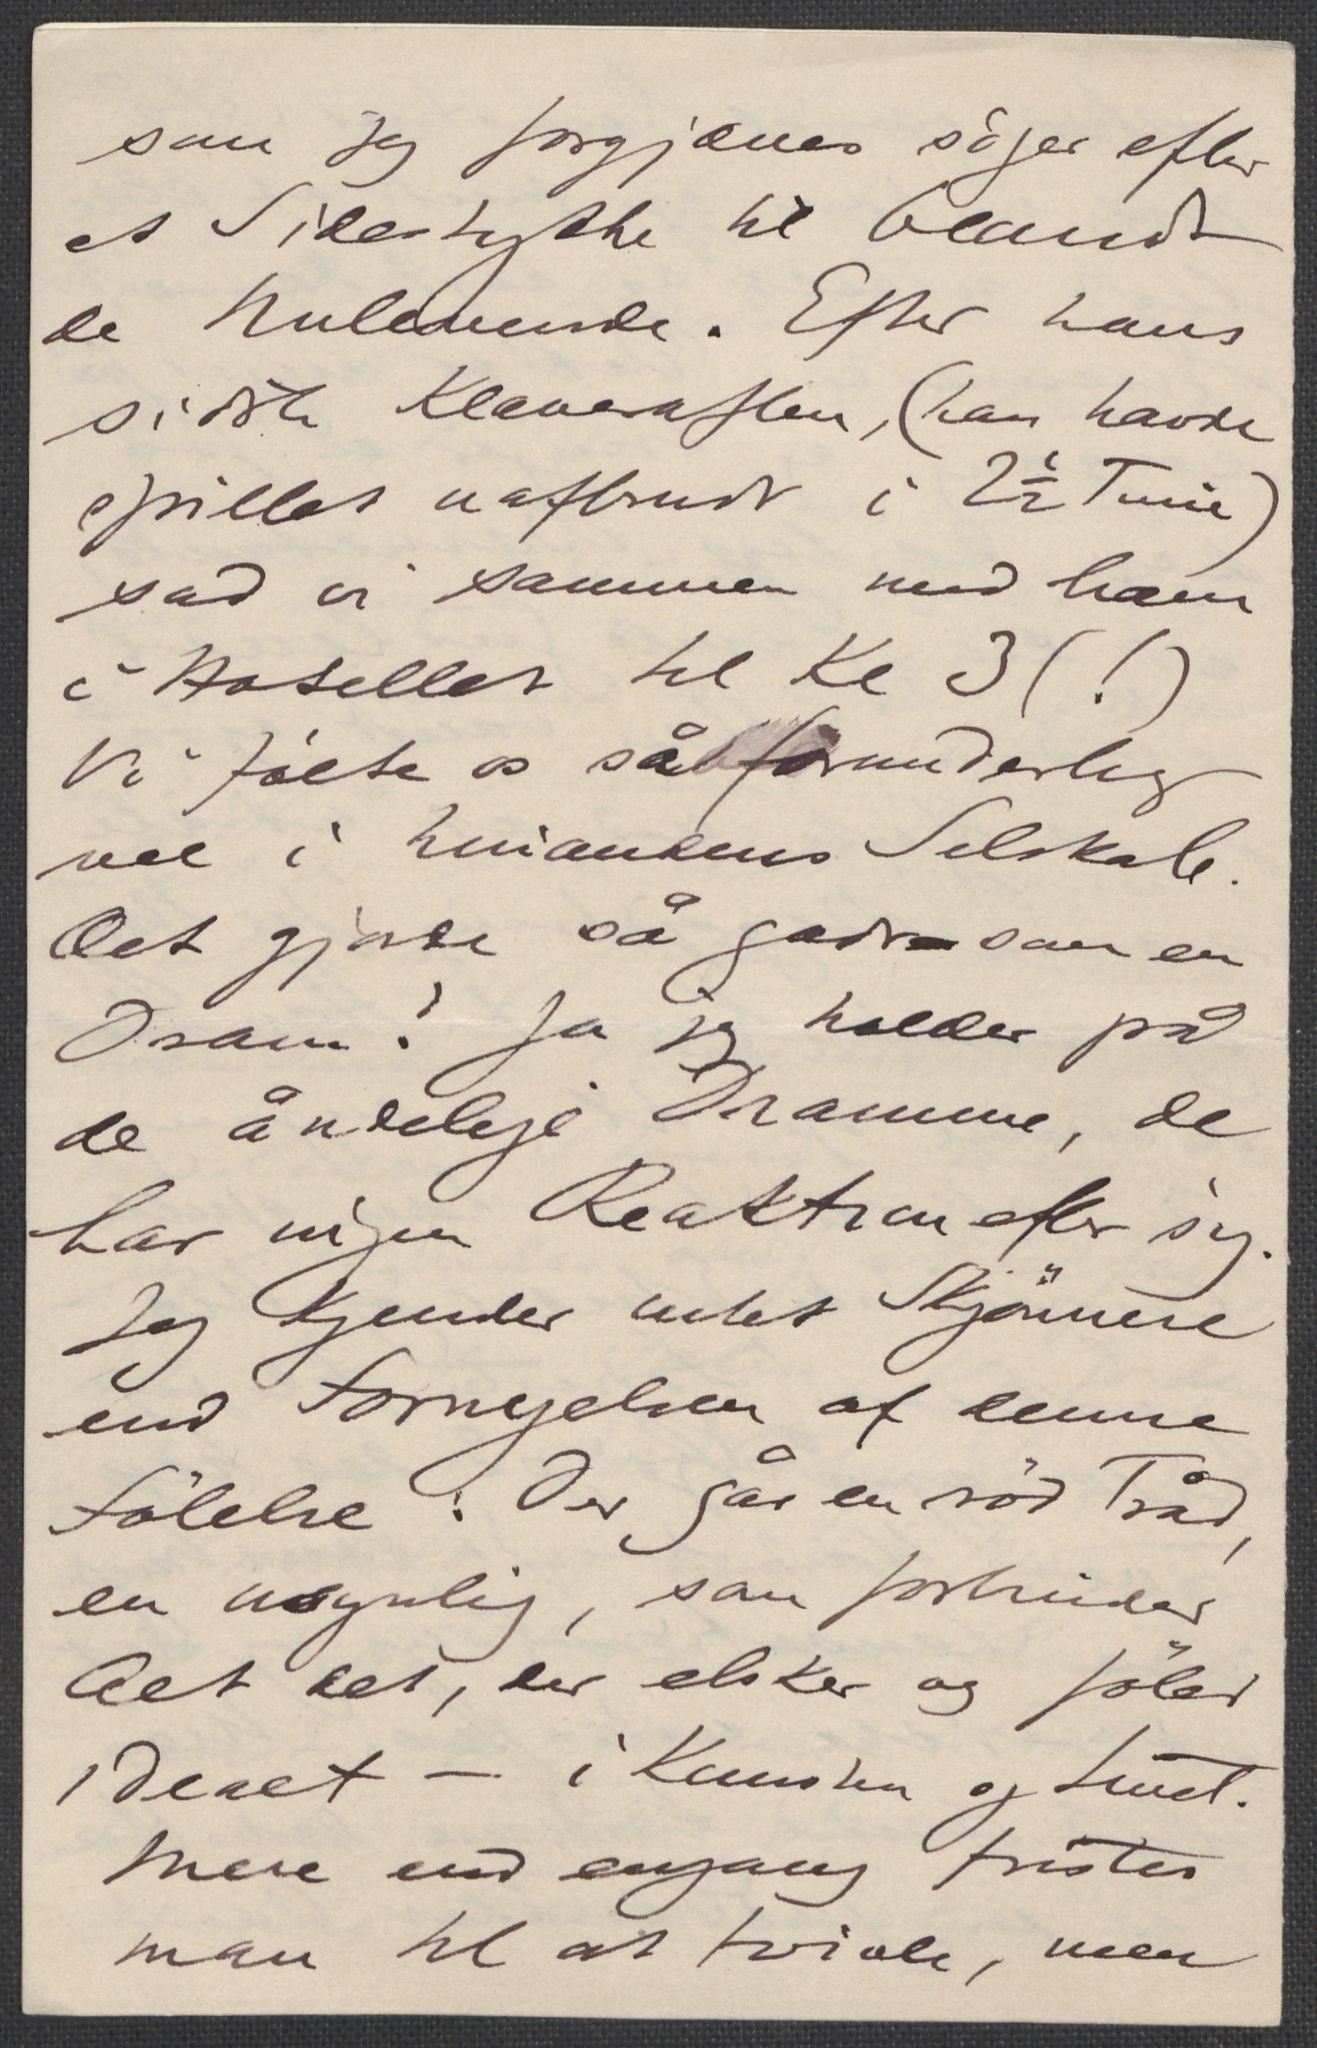 som jeg forgjæves söger efter
et Sidestykke til blandt
de Nulevende. Efter hans
sidste Klaveraften, (han havde
spillet uafbrudt i 2½ Time)
sad vi sammen med ham
i Hotellet til Kl 3 (!)
Vi fölte os så forunderlig
vel i hinandens Selskab.
Det gjorde så godt som en
Dram! Ja jeg holder på
de åndelige Dramme, de
har ingen Reaktion efter sig.
Jeg kjender intet Skjönnere
end Fornyelsen af denne
Fölelse! Der går en röd Tråd,
en usynlig, som forbinder
Alt det, der elsker og föler
ideelt — i Kunsten og Livet.
Mere end engang fristes
man til at tvivle, men